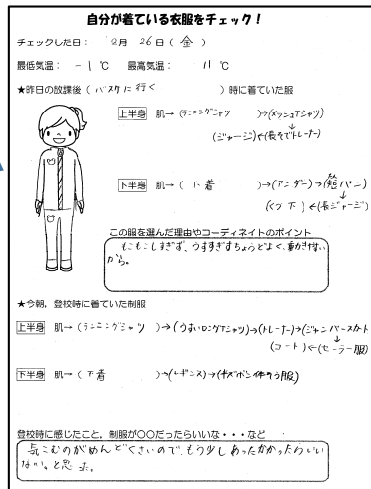 自分が着ている衣服をチェック！
チェックした日： 2月 26日（金）
最低気温： -1 ℃ 最高気温： 11 ℃
★昨日の放課後（バスケに行く）時に着ていた服
上半身 肌→（ランニングシャツ）→（メッシュTシャツ）
（ジャージ）←（長そでトレーナー）
下半身 肌→（下着）→（アンダー）→（短パン）
（くつ下）←（長ジャージ）
この服を選んだ理由やコーディネイトのポイント
もこもこしすぎず、うすすぎずちょうどよく、動きやすい
から。
★今朝，登校時に着ていた制服
上半身 肌→（ランニングシャツ）→（うすいロングTシャツ）→（トレーナー）→（ジャンパースカート）
（コート）←（セーラー服）
下半身 肌→（下着）→（レギンス）→（半ズボン 体そう服）
登校時に感じたこと，制服が〇〇だったらいいな・・・など
着こむのがめんどくさいので、もう少しあったかかったらいい
なぁ。と思った。